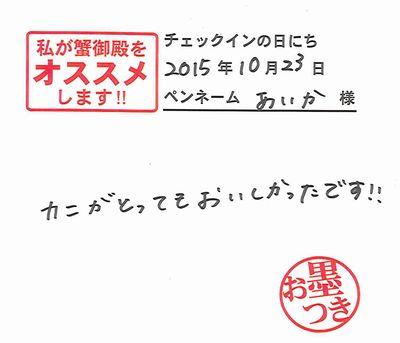 私が蟹御殿を
オススメ
します!!
チェックインの日にち
2015年10月23日
ペンネーム あいか 様
カニがとってもおいしかったです!!
お墨つき